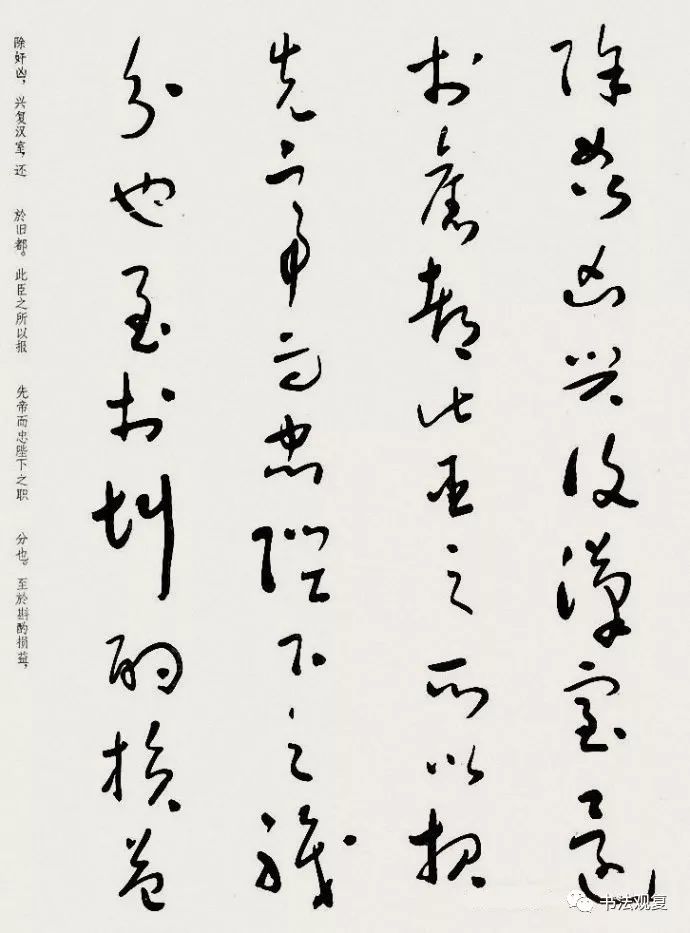 除姦凶興復漢室還
於舊都此臣之所以報
先帝而忠陛下之職
分也至於斟酌損益
除奸凶，兴复汉室，还 於旧都。此臣之所以报 先帝而忠陛下之职 分也。至於斟酌损益，
书法观复